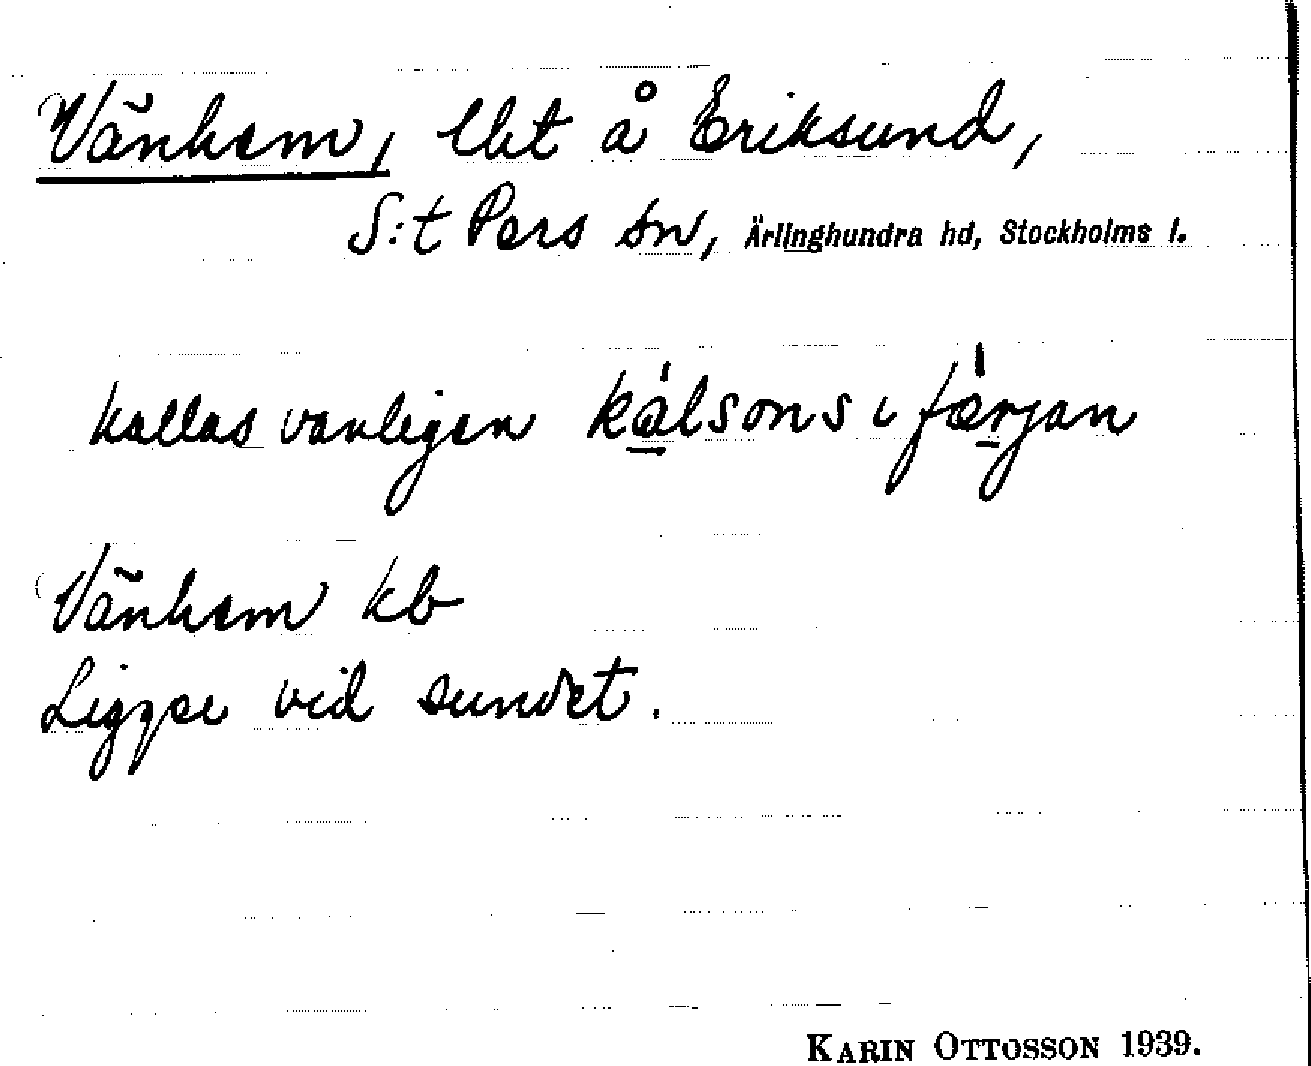 Vänhem, lht å Eriksund,
S:t Pers sn, Ärlinghundra hd, Stockholms l.
kallas vanligen kálsons i fǽrjan
Vänhem kb
Ligger vid sundet.
KARIN OTTOSSON 1939.